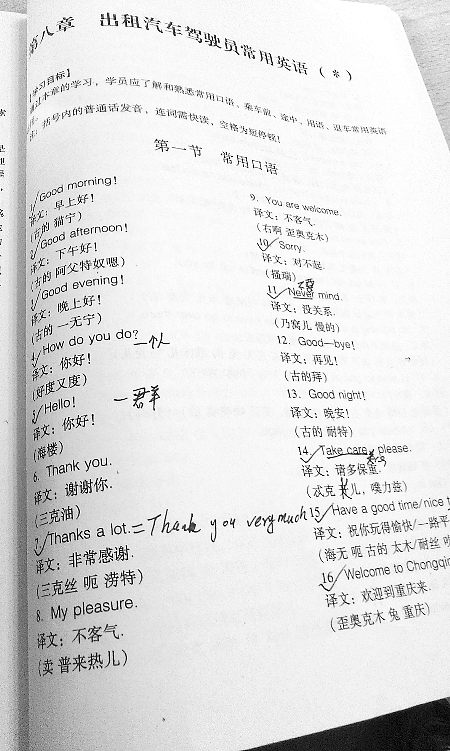 第八章 出租汽车驾驶员常用英语（*）
【学习目标】
通过本章的学习，学员应了解和熟悉常用口语、乘车前、途中、用语、退车常用英语
注：括号内的普通话发音，连词需快读，空格为短停顿！
第一节 常用口语
1. Good morning!
译文：早上好！
（古的 猫宁）
2. Good afternoon!
译文：下午好！
（古的 阿父特奴嗯）
3. Good evening!
译文：晚上好！
（古的 一无宁）
4. How do you do? 一个人
译文：你好！
（好度又度）
5. Hello! 一君羊
译文：你好！
（海楼）
6. Thank you.
译文：谢谢你.
（三克油）
7. Thanks a lot. = Thank you very much
译文：非常感谢.
（三克丝 呃 涝特）
8. My pleasure.
译文：不客气.
（卖 普来热儿）
9. You are welcome.
译文：不客气.
（右啊 歪奥克木）
10. Sorry.
译文：对不起.
（搔瑞）
11. Never mind.
译文：没关系.
（乃窝儿 慢的）
12. Good—bye!
译文：再见！
（古的拜）
13. Good night!
译文：晚安！
（古的 耐特）
14. Take care, please.
译文：请多保重.
（忒克 儿，噗力兹）
15. Have a good time/nice t
译文：祝你玩得愉快/一路平
（海无 呃 古的 太木/耐丝
16. Welcome to Chongqin
译文：欢迎到重庆来.
（歪奥克木 兔 重庆）